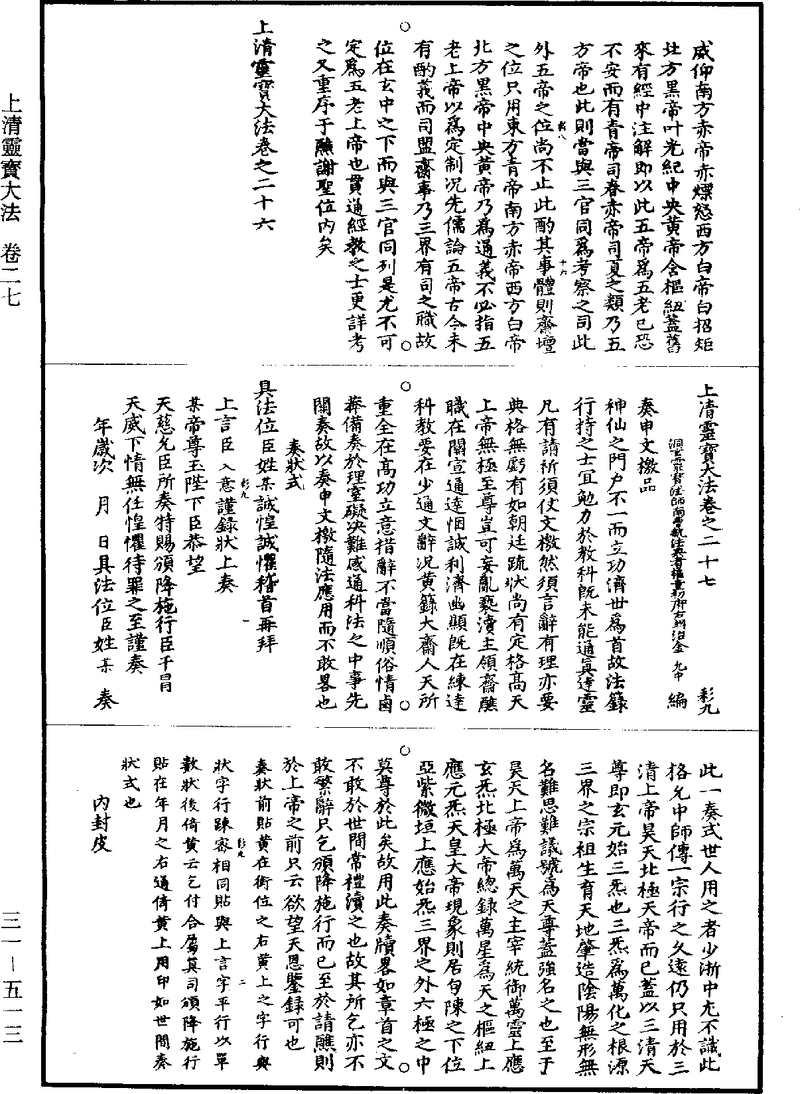 上清靈寶大法 卷二七
三一—五一三
威仰南方赤帝赤熛怒西方白帝白招矩
北方黑帝叶光紀中央黃帝含樞紐蓋舊
來有經中注解即以此五帝為五老已恐
不安而有青帝司春赤帝司夏之類乃五
方帝也此則當與三官同為考察之司此
外五帝之位尚不止此酌其事體則齋壇
之位只用東方青帝南方赤帝西方白帝
北方黑帝中央黃帝乃為通義不必指五
老上帝以為定制況先儒論五帝古今未
有酌義而司盟齋事乃三界有司之職故
位在玄中之下而與三官同列是尤不可
定為五老上帝也貫通經教之士更詳考
之又重序于醮謝聖位內矣
上清靈寶大法卷之二十六
上清靈寶大法卷之二十七
彩九
編
奏申文檄品
神仙之門戶不一而立功濟世為首故法籙
行持之士宜勉力於教科既未能通真達靈
凡有請祈須仗文檄然須言辭有理亦要
典格無虧有如朝廷疏狀尚有定格高天
上帝無極至尊豈可妄亂褻瀆主領齋醮
職在關宣通達悃誠利濟幽顯既在練達
科教要在少通文辭況黃籙大齋人天所
重全在高功立意措辭不當隨順俗情鹵
莽備奏於理窒礙決難感通科法之中事先
關奏故以奏申文檄隨法應用而不敢畧也
奏狀式
具法位臣姓某誠惶誠懼稽首再拜
上言臣入意謹錄狀上奏
某帝尊玉陛下臣恭望
天慈允臣所奏特賜頒降施行臣干冒
天威下情無任惶懼待罪之至謹奏
年歲次 月 日具法位臣姓某 奏
此一奏式世人用之者少浙中尤不識此
格允中師傳一宗行之久遠仍只用於三
清上帝昊天北極天帝而已蓋以三清天
尊即玄元始三炁也三炁為萬化之根源
三界之宗祖生育天地肇造陰陽無形無
名難思難議號為天尊蓋強名之也至于
昊天上帝為萬天之主宰統御萬靈上應
玄炁北極大帝總錄萬星為天之樞紐上
應元炁天皇大帝現象則居勾陳之下位
亞紫微垣上應始炁三界之外六極之中
莫尊於此矣故用此奏牘畧如章首之文
不敢於世間常禮瀆之也故其所乞亦不
敢繁辭只乞頒降施行而已至於請醮則
於上帝之前只云欲望天恩鑒錄可也
奏狀前貼黃在銜位之右黃上之字行與
狀字行踈密相同貼與上言字平行以單
數狀後倚黃云乞付合屬真司頒降施行
貼在年月之右通倚黃上用印如世間奏
狀式也
內封皮